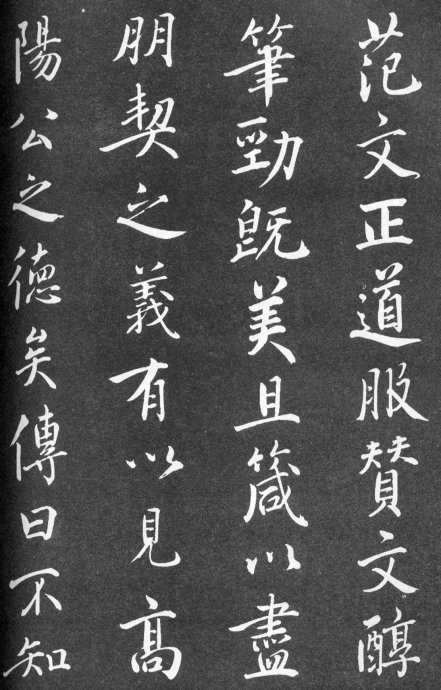 范文正道服賛文醇
筆勁既美且箴以盡
朋契之義有以見高
陽公之德矣傳曰不知